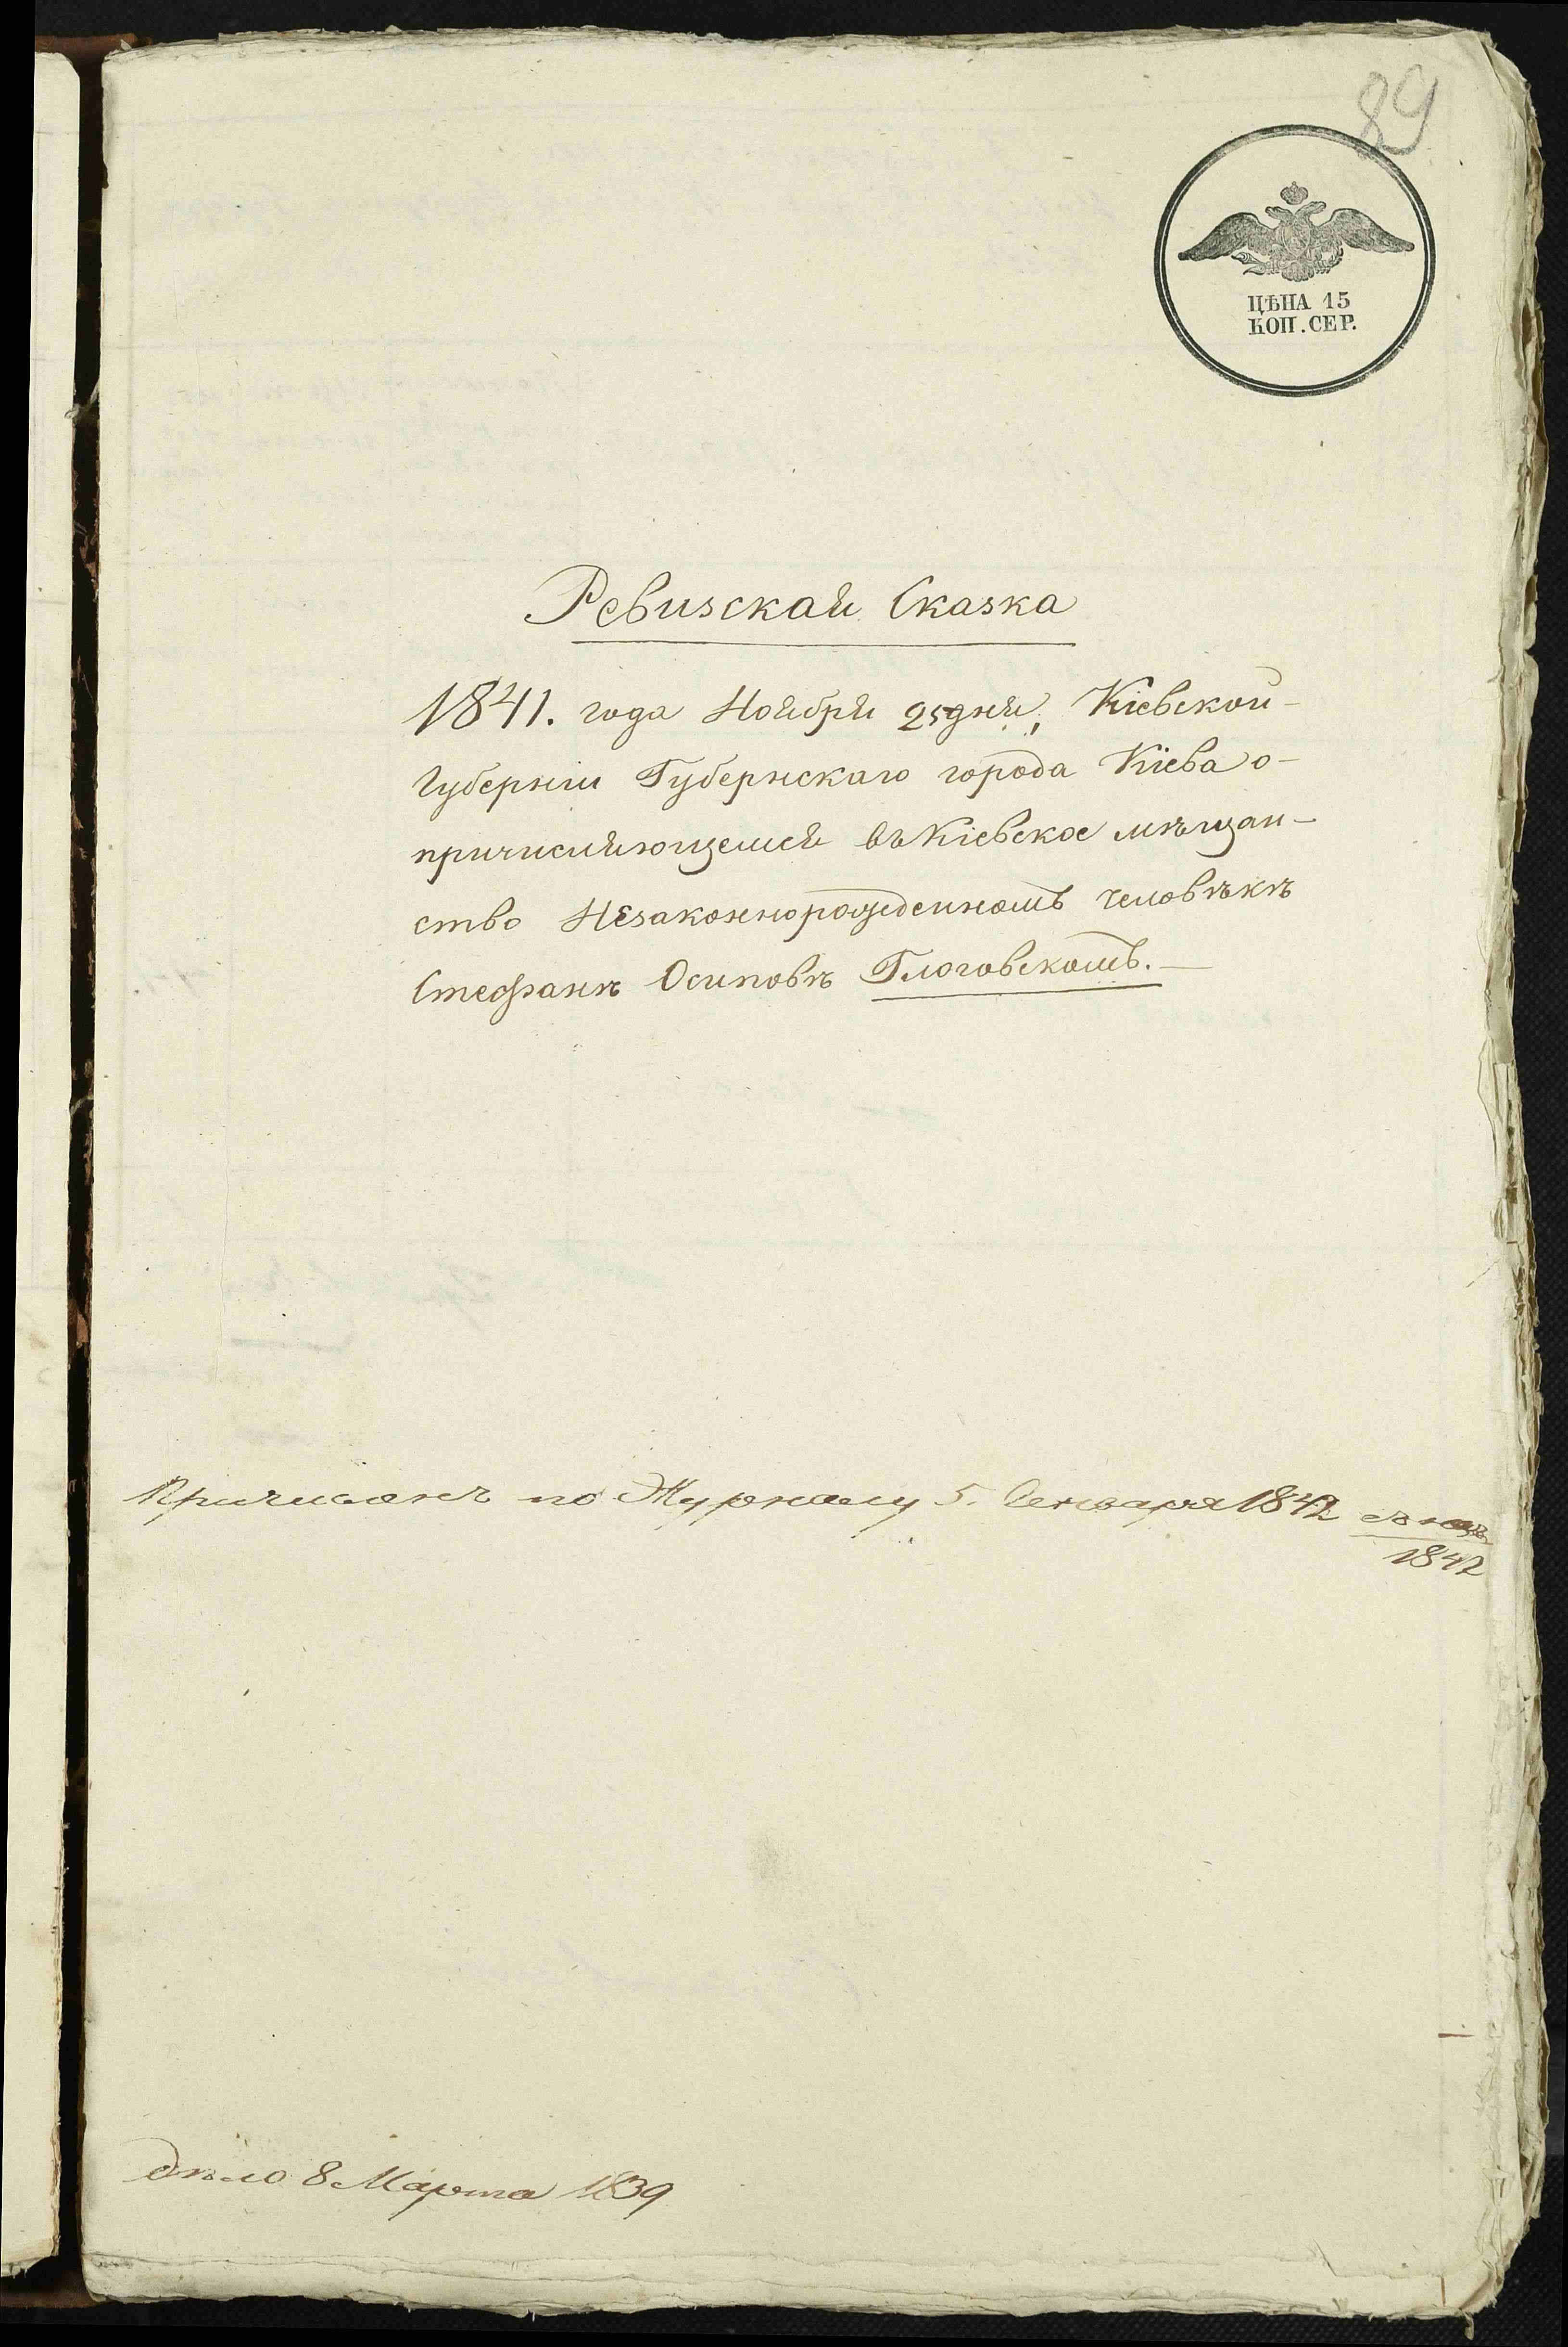 89
ЦѢНА 15
КОП. СЕР.
Ревизская Сказка
1841. года Ноября 25 дня, Кіевской
Губерніи Губернскаго города Кіева о
причисляющемся въ Кіевское мѣщан-
ство Незаконнорожденномъ человѣкѣ
Стефанѣ Осиповѣ Глоговскомъ.
Причисленъ по Журналу 5. Генваря 1842
1842
дѣло 8 Марта 1839